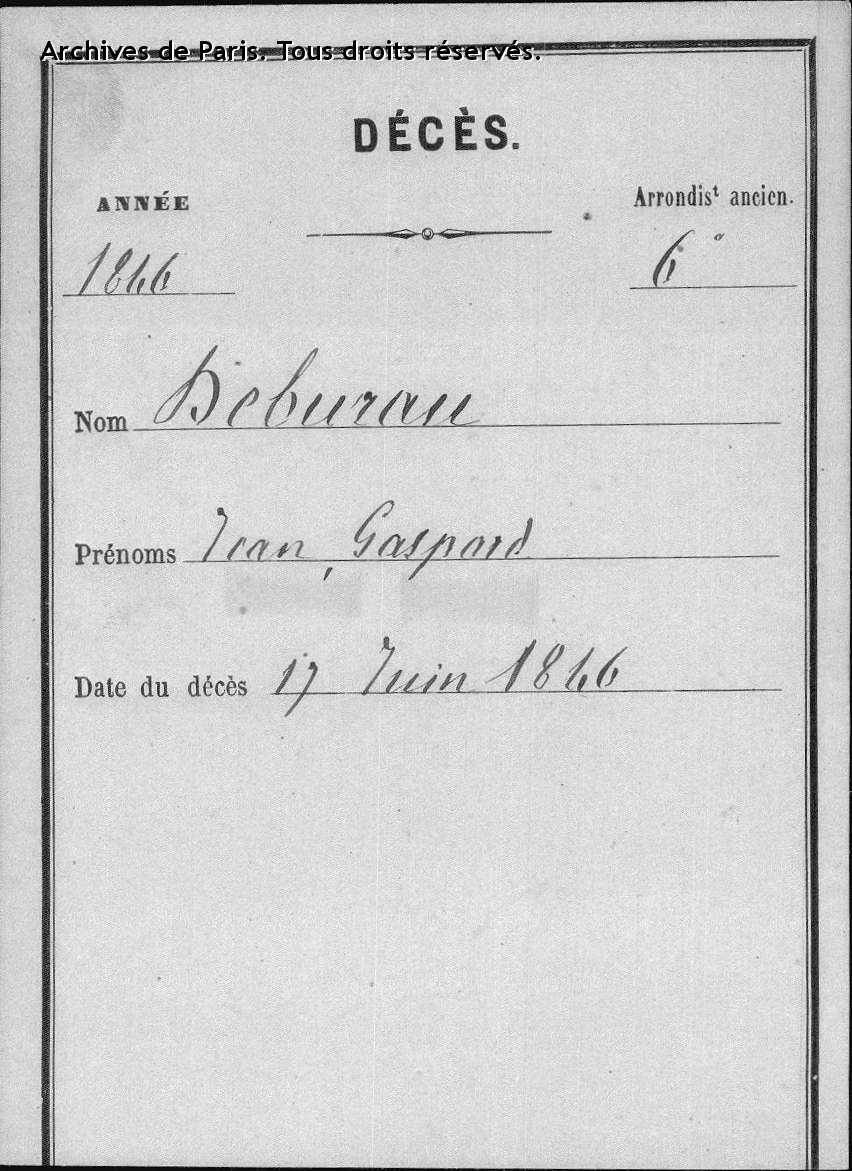 Archives de Paris. Tous droits réservés.
DÉCÈS.
ANNÉE
Arrondisᵗ ancien.
1846
6ᵉ
Nom Deburau
Prénoms Jean, Gaspard
Date du décès 17 Juin 1846